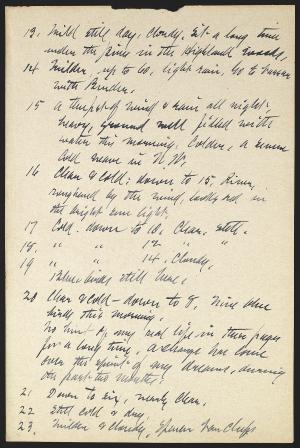 13. Mild still day, cloudy. Sit a long time
under the pines in the Highland woods.
14 Milder, up to 60, light rain. Go to
with
15 a tempest of wind & rain all night.
heavy, ground well filled with
water this morning. Colder, a severe
cold wave in N.W.
16 Clear & cold; down to 15. River
roughened by the wind, looks red in
the bright sun light.
17 Cold. down to 10. Clear, still.
18. " " 12 " "
19 " " 14. Cloudy.
Blue-birds still here.
20 Clear & cold — down to 8. Nine blue
birds this morning.
No hint of my real life in these pages
for a long time. A change has come
over the spirit of my dreams, during
the past two months.
21 Down to six, nearly clear.
22 Still cold & dry.
23 Milder & cloudy,